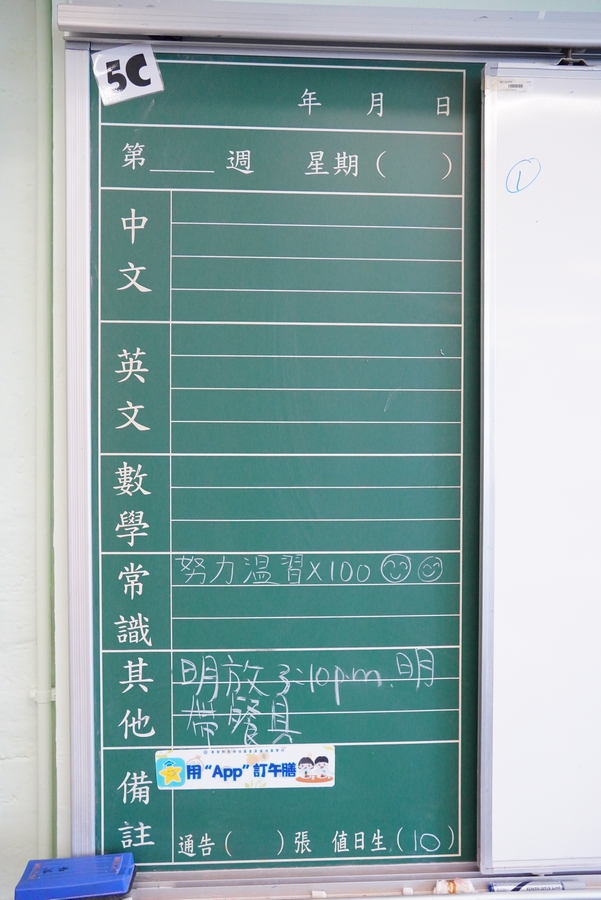 5C
年 月 日
第____週 星期( )
中文
英文
數學
常識 努力温習X100
其他 明放3:10pm.明
帶餐具
備註
用“App”訂午膳
通告( )張 值日生(10)
1